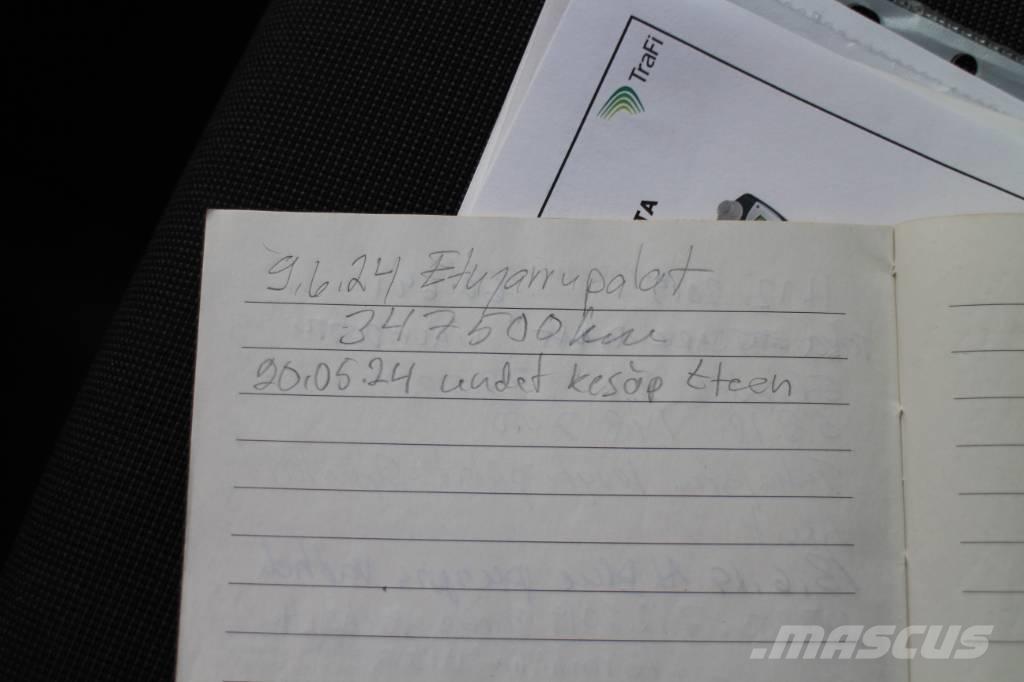 TraFi
TA
9.6.24 Etujarrupalat
347500km
20.05.24 uudet kesäp Eteen
.MASCUS